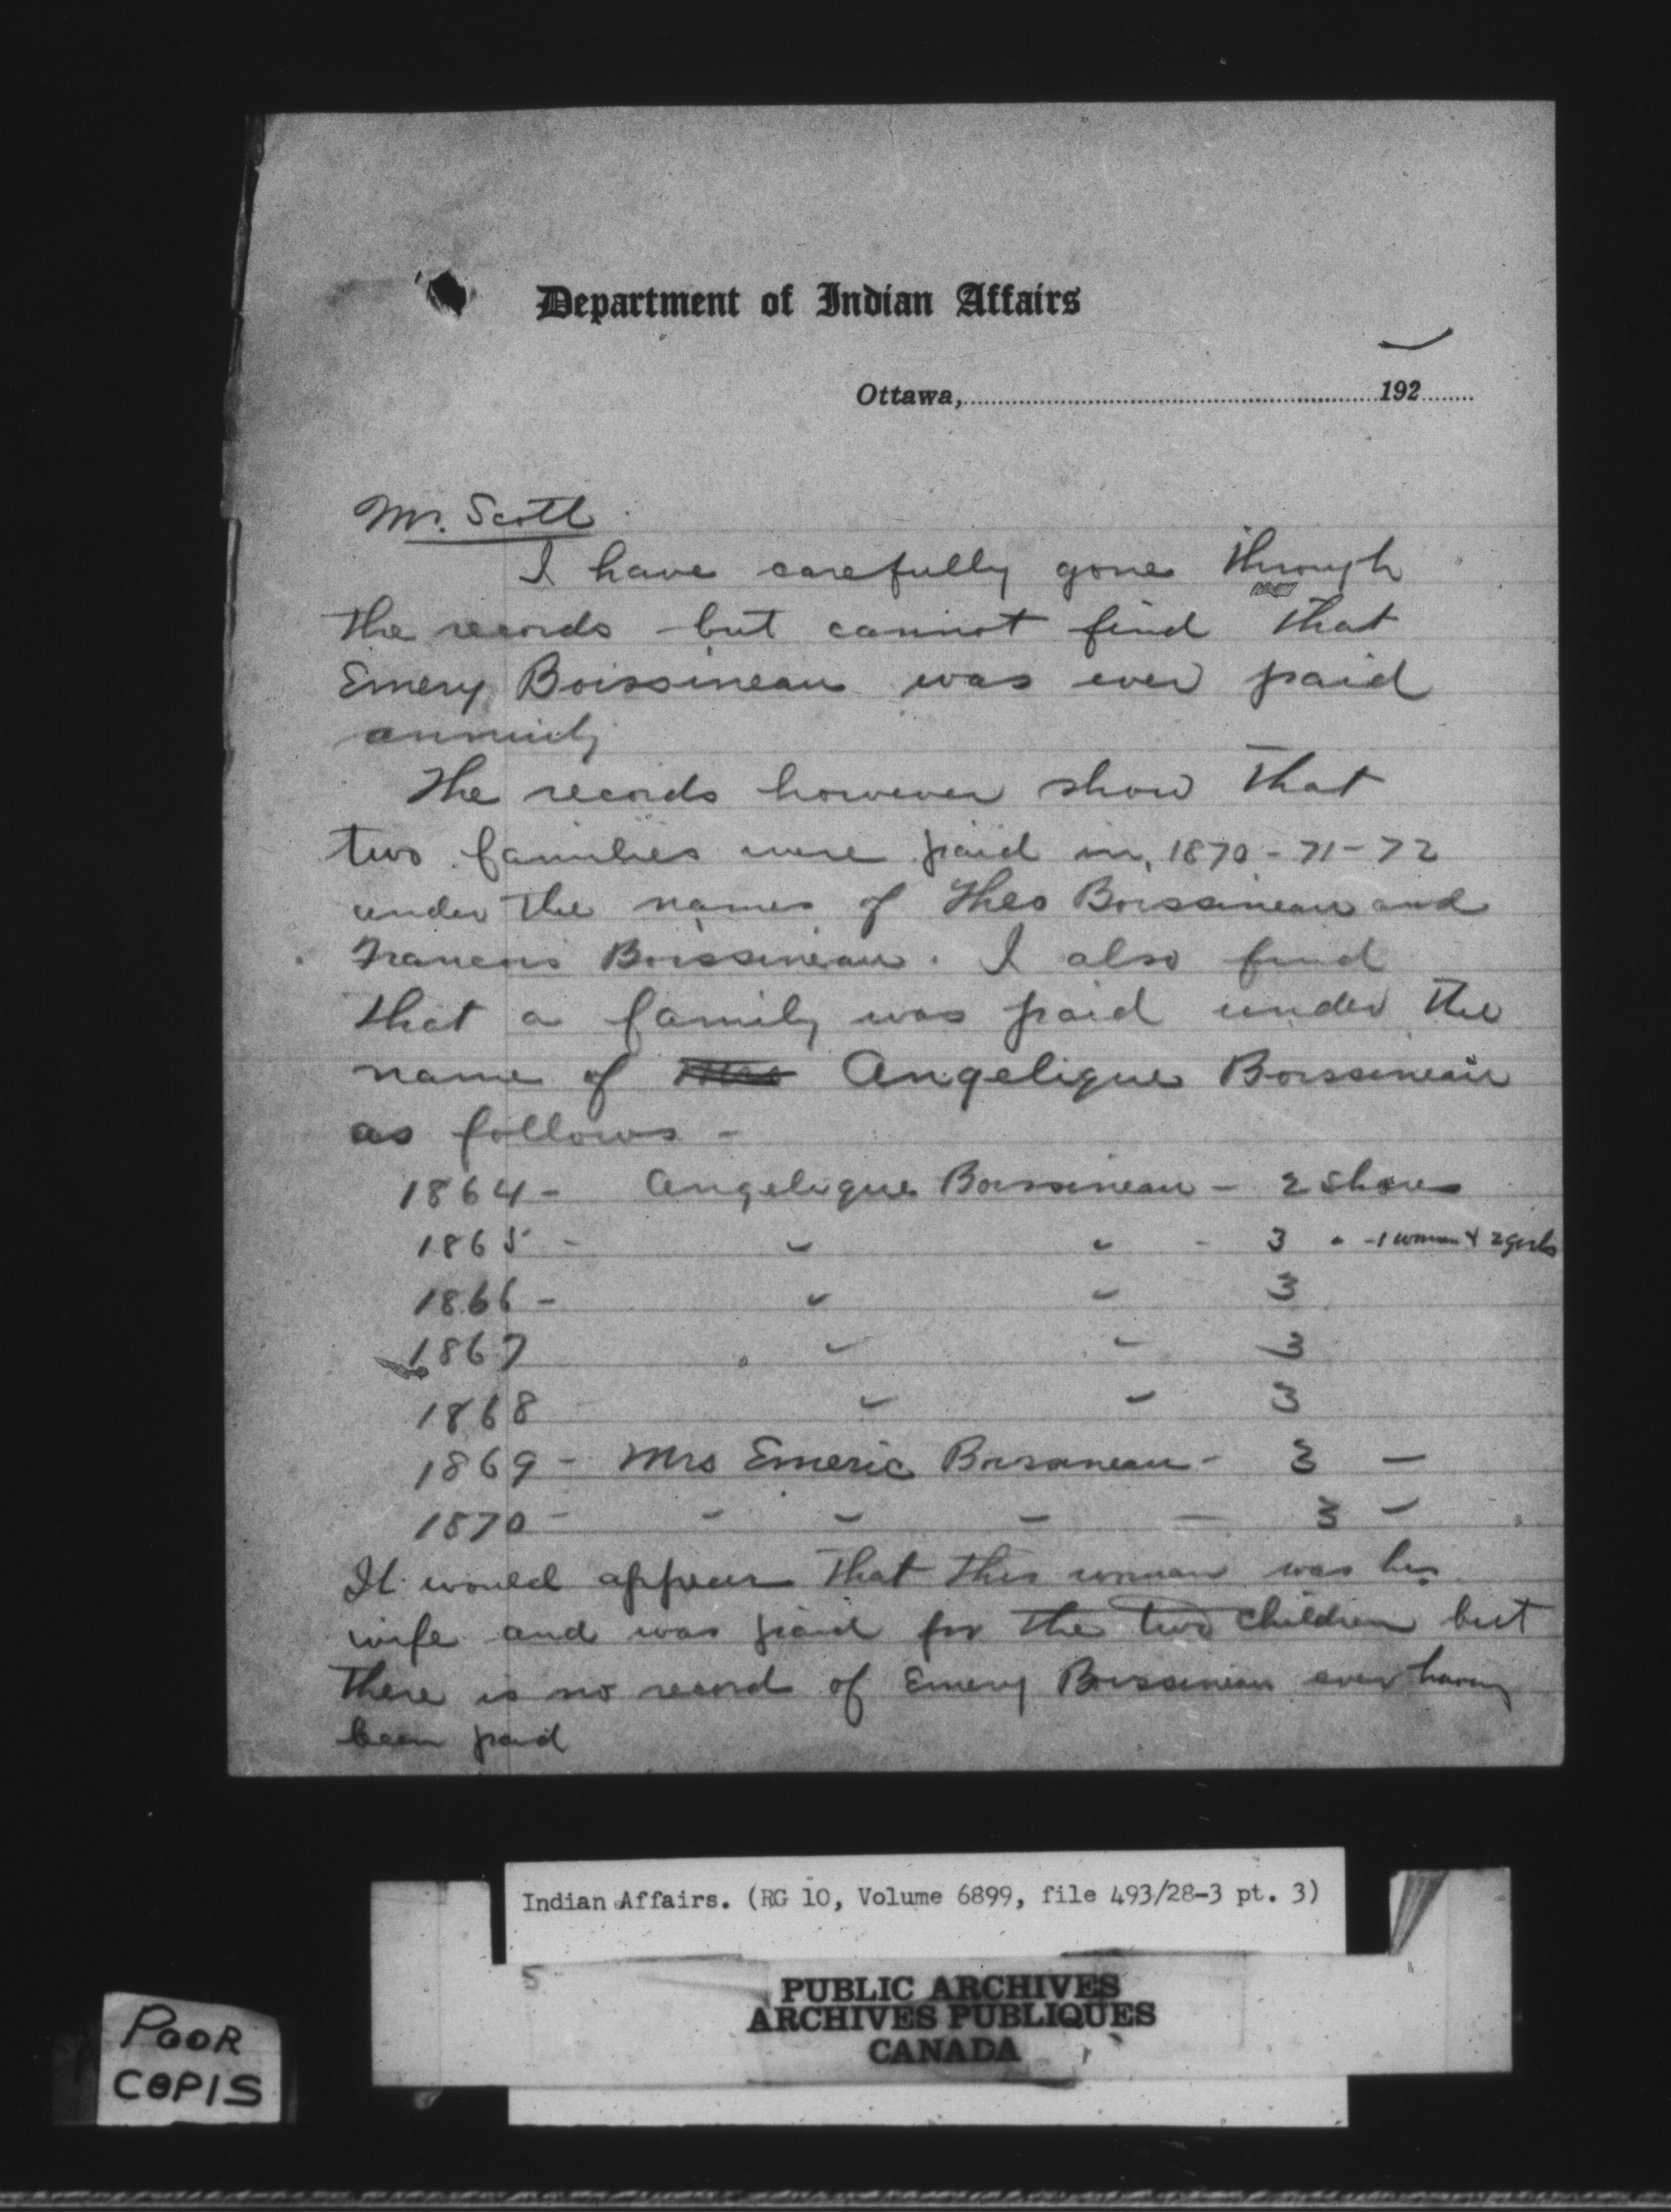 Department of Indian Affairs
Ottawa, 192
Mr. Scott
I have carefully gone through
the records but cannot find that
Emery Boissineau was ever paid
annuity
The records however show that
two families were paid in 1870-71-72
under the names of Theo Boissineau and
Francois Boissineau. I also find
that a family was paid under the
name of Mrs Angelique Boissineau
as follows -
1864 - Angelique Boissineau - 2 shares
1865 - " " - 3 " - 1 woman & 2 girls
1866 - " " 3
1867 " " 3
1868 " " 3
1869 - Mrs Emeric Boissineau - 3 "
1870 - " " " " 3 "
It would appear that this woman was his
wife and was paid for the two children but
there is no record of Emery Boissineau ever having
been paid
Indian Affairs. (RG 10, Volume 6899, file 493/28-3 pt. 3)
5
PUBLIC ARCHIVES
ARCHIVES PUBLIQUES
CANADA
POOR
COPIS